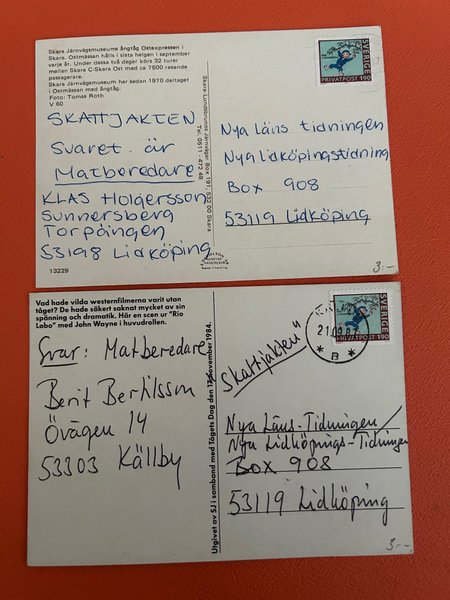 Skara Järnvägsmuseums ångtåg Ostexpressen i
Skara. Ostmässan hålls i sista helgen i september
varje år. Under dessa två dagar körs 32 turer
mellan Skara C-Skara Ost med ca 7500 resande
passagerare.
Skara Järnvägsmuseum har sedan 1970 deltaget
i Ostmässan med ångtåg.
Foto: Tomas Roth
V 60
SKATTJAKTEN
Svaret är
Matberedare
KLAS Holgersson
Sunnersberg
Torpängen
53198 Lidköping
13229
Skara-Lundsbrunns Järnvägar Box 191, 532 00 Skara
Tel. 0511 - 472 48
SVERIGE
PRIVATPOST 190
Nya Läns tidningen
Nya lidköpingstidning
Box 908
53119 Lidköping
3:-
Vad hade vilda westernfilmerna varit utan
tåget? De hade säkert saknat mycket av sin
spänning och dramatik. Här en scen ur "Rio
Lobo" med John Wayne i huvudrollen.
Svar: Matberedare
Berit Bertilsson
Övägen 14
53303 Källby
Utgivet av SJ i samband med Tågets Dag den
november 1984.
SVERIGE
PRIVATPOST 190
B
Skattjakten"
Nya Läns-Tidningen/
Nya Lidköpings-Tidningen
Box 908
53119 Lidköping
3:-